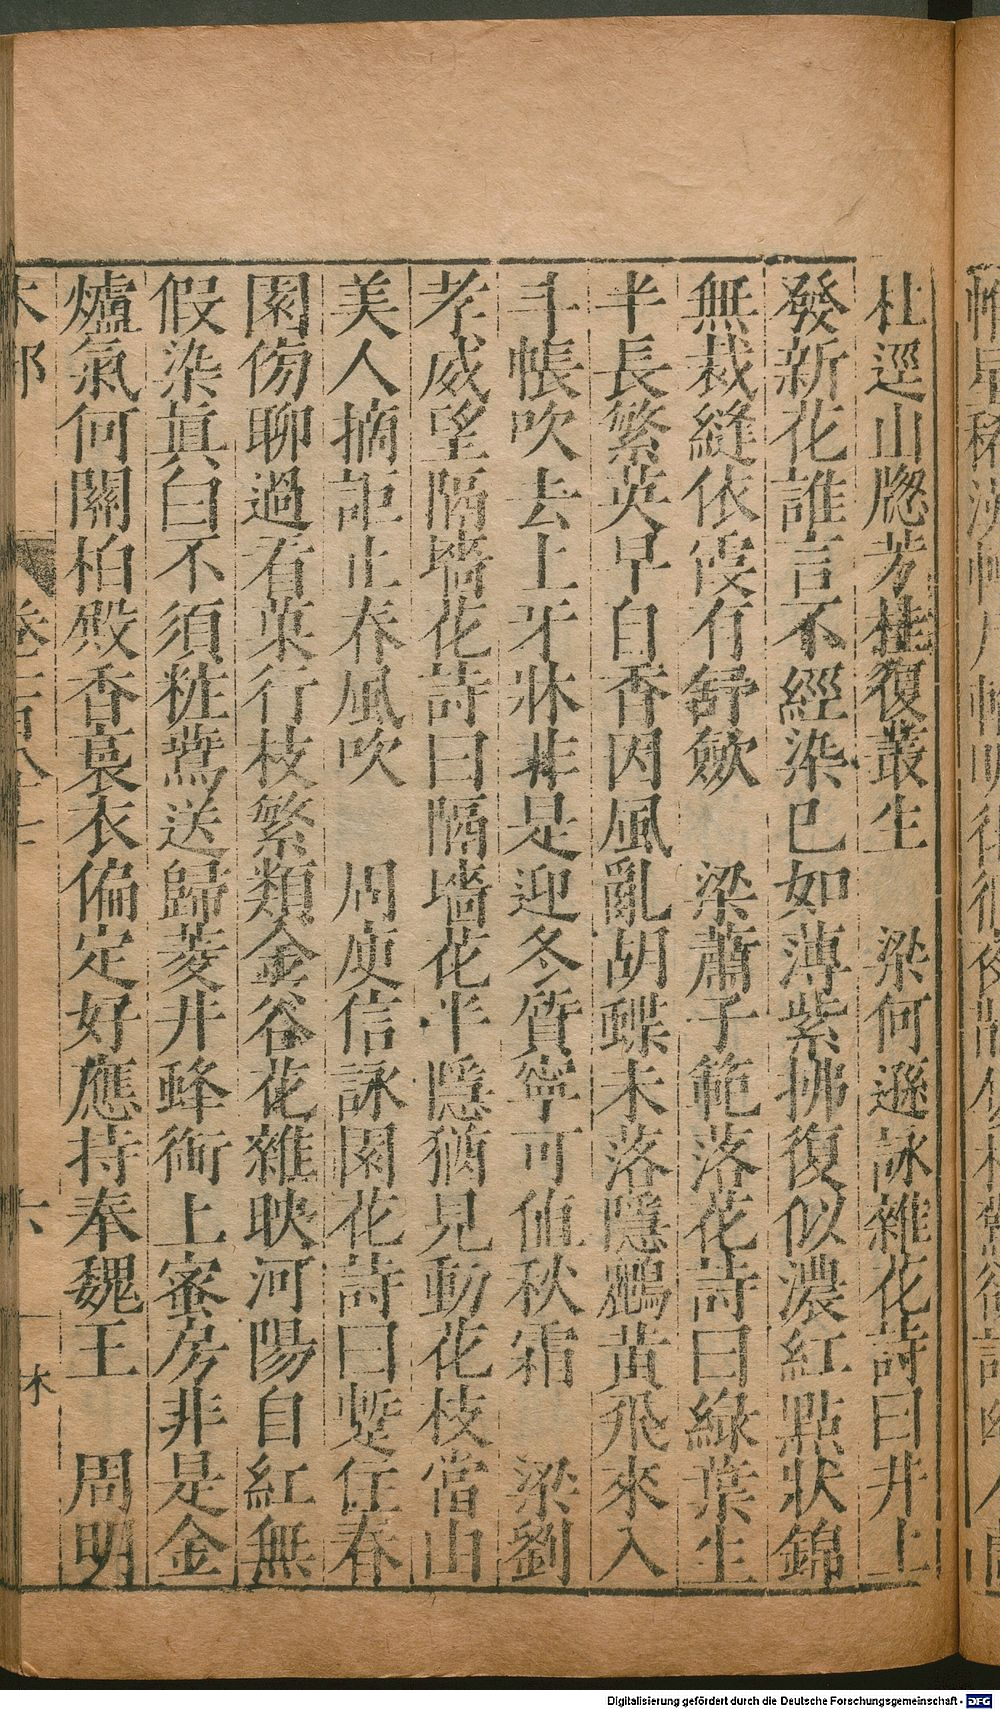 杜逕山牎芳桂復叢生　梁何遜詠雜花詩曰井上
發新花誰言不經染已如薄紫拂復似濃紅點狀錦
無裁縫依霞有舒歛　梁蕭子範落花詩曰綠葉生
半長繁英早自香因風亂胡蝶未落隱鸝黃飛來入
斗帳吹去上牙牀非是迎冬質寧可值秋霜　梁劉
孝威望隔墻花詩曰隔墻花半隱猶見動花枝當由
美人摘詎止春風吹　周庾信詠園花詩曰蹔往春
園傍聊過看菓行枝繁類金谷花雜映河陽自紅無
假染真白不須粧鷰送歸菱井蜂銜上蜜房非是金
爐氣何關柏殿香裛衣偏定好應持奉魏王　周明
木部　卷二百八十　六　林
Digitalisierung gefördert durch die Deutsche Forschungsgemeinschaft - DFG